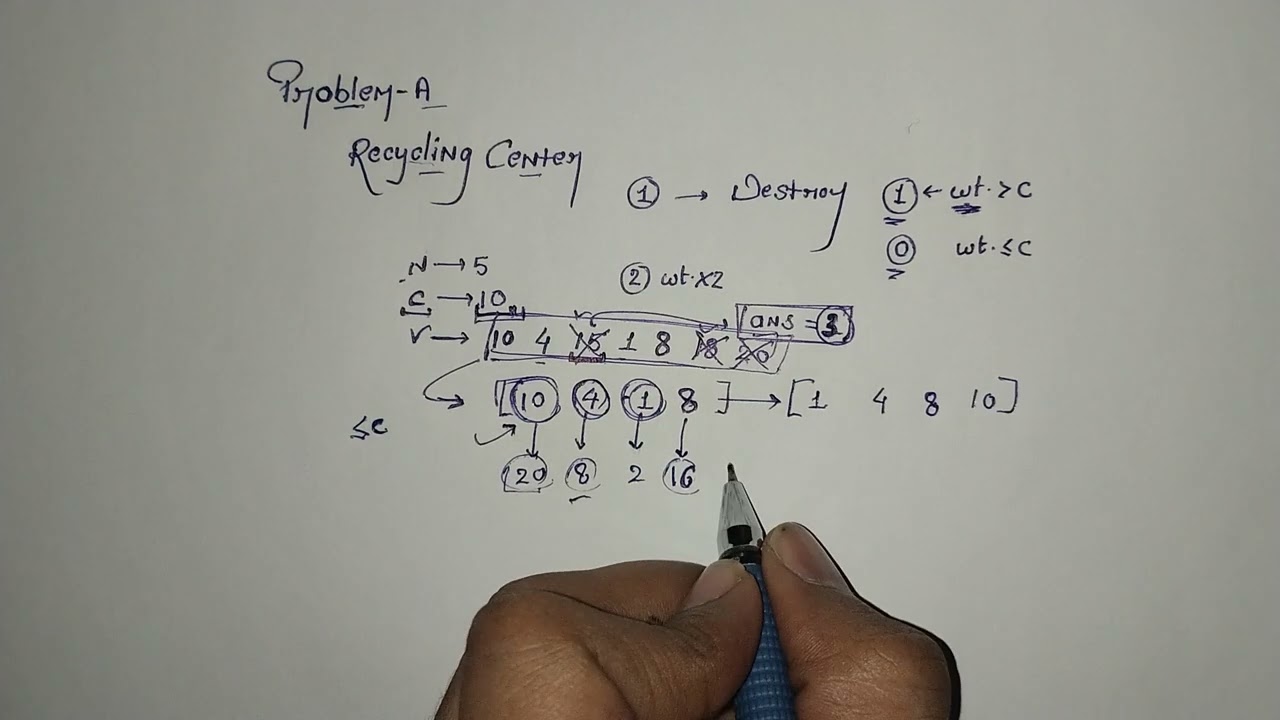 Problem-A
Recycling Center
① → Destroy ① ← wt. > C
⓪ wt. ≤ C
N → 5
② wt. x2
C → 10
ans =
→ [10 4 15 1 8 18 20]
[10 4 1 8] → [1 4 8 10]
≤ C
20 8 2 16